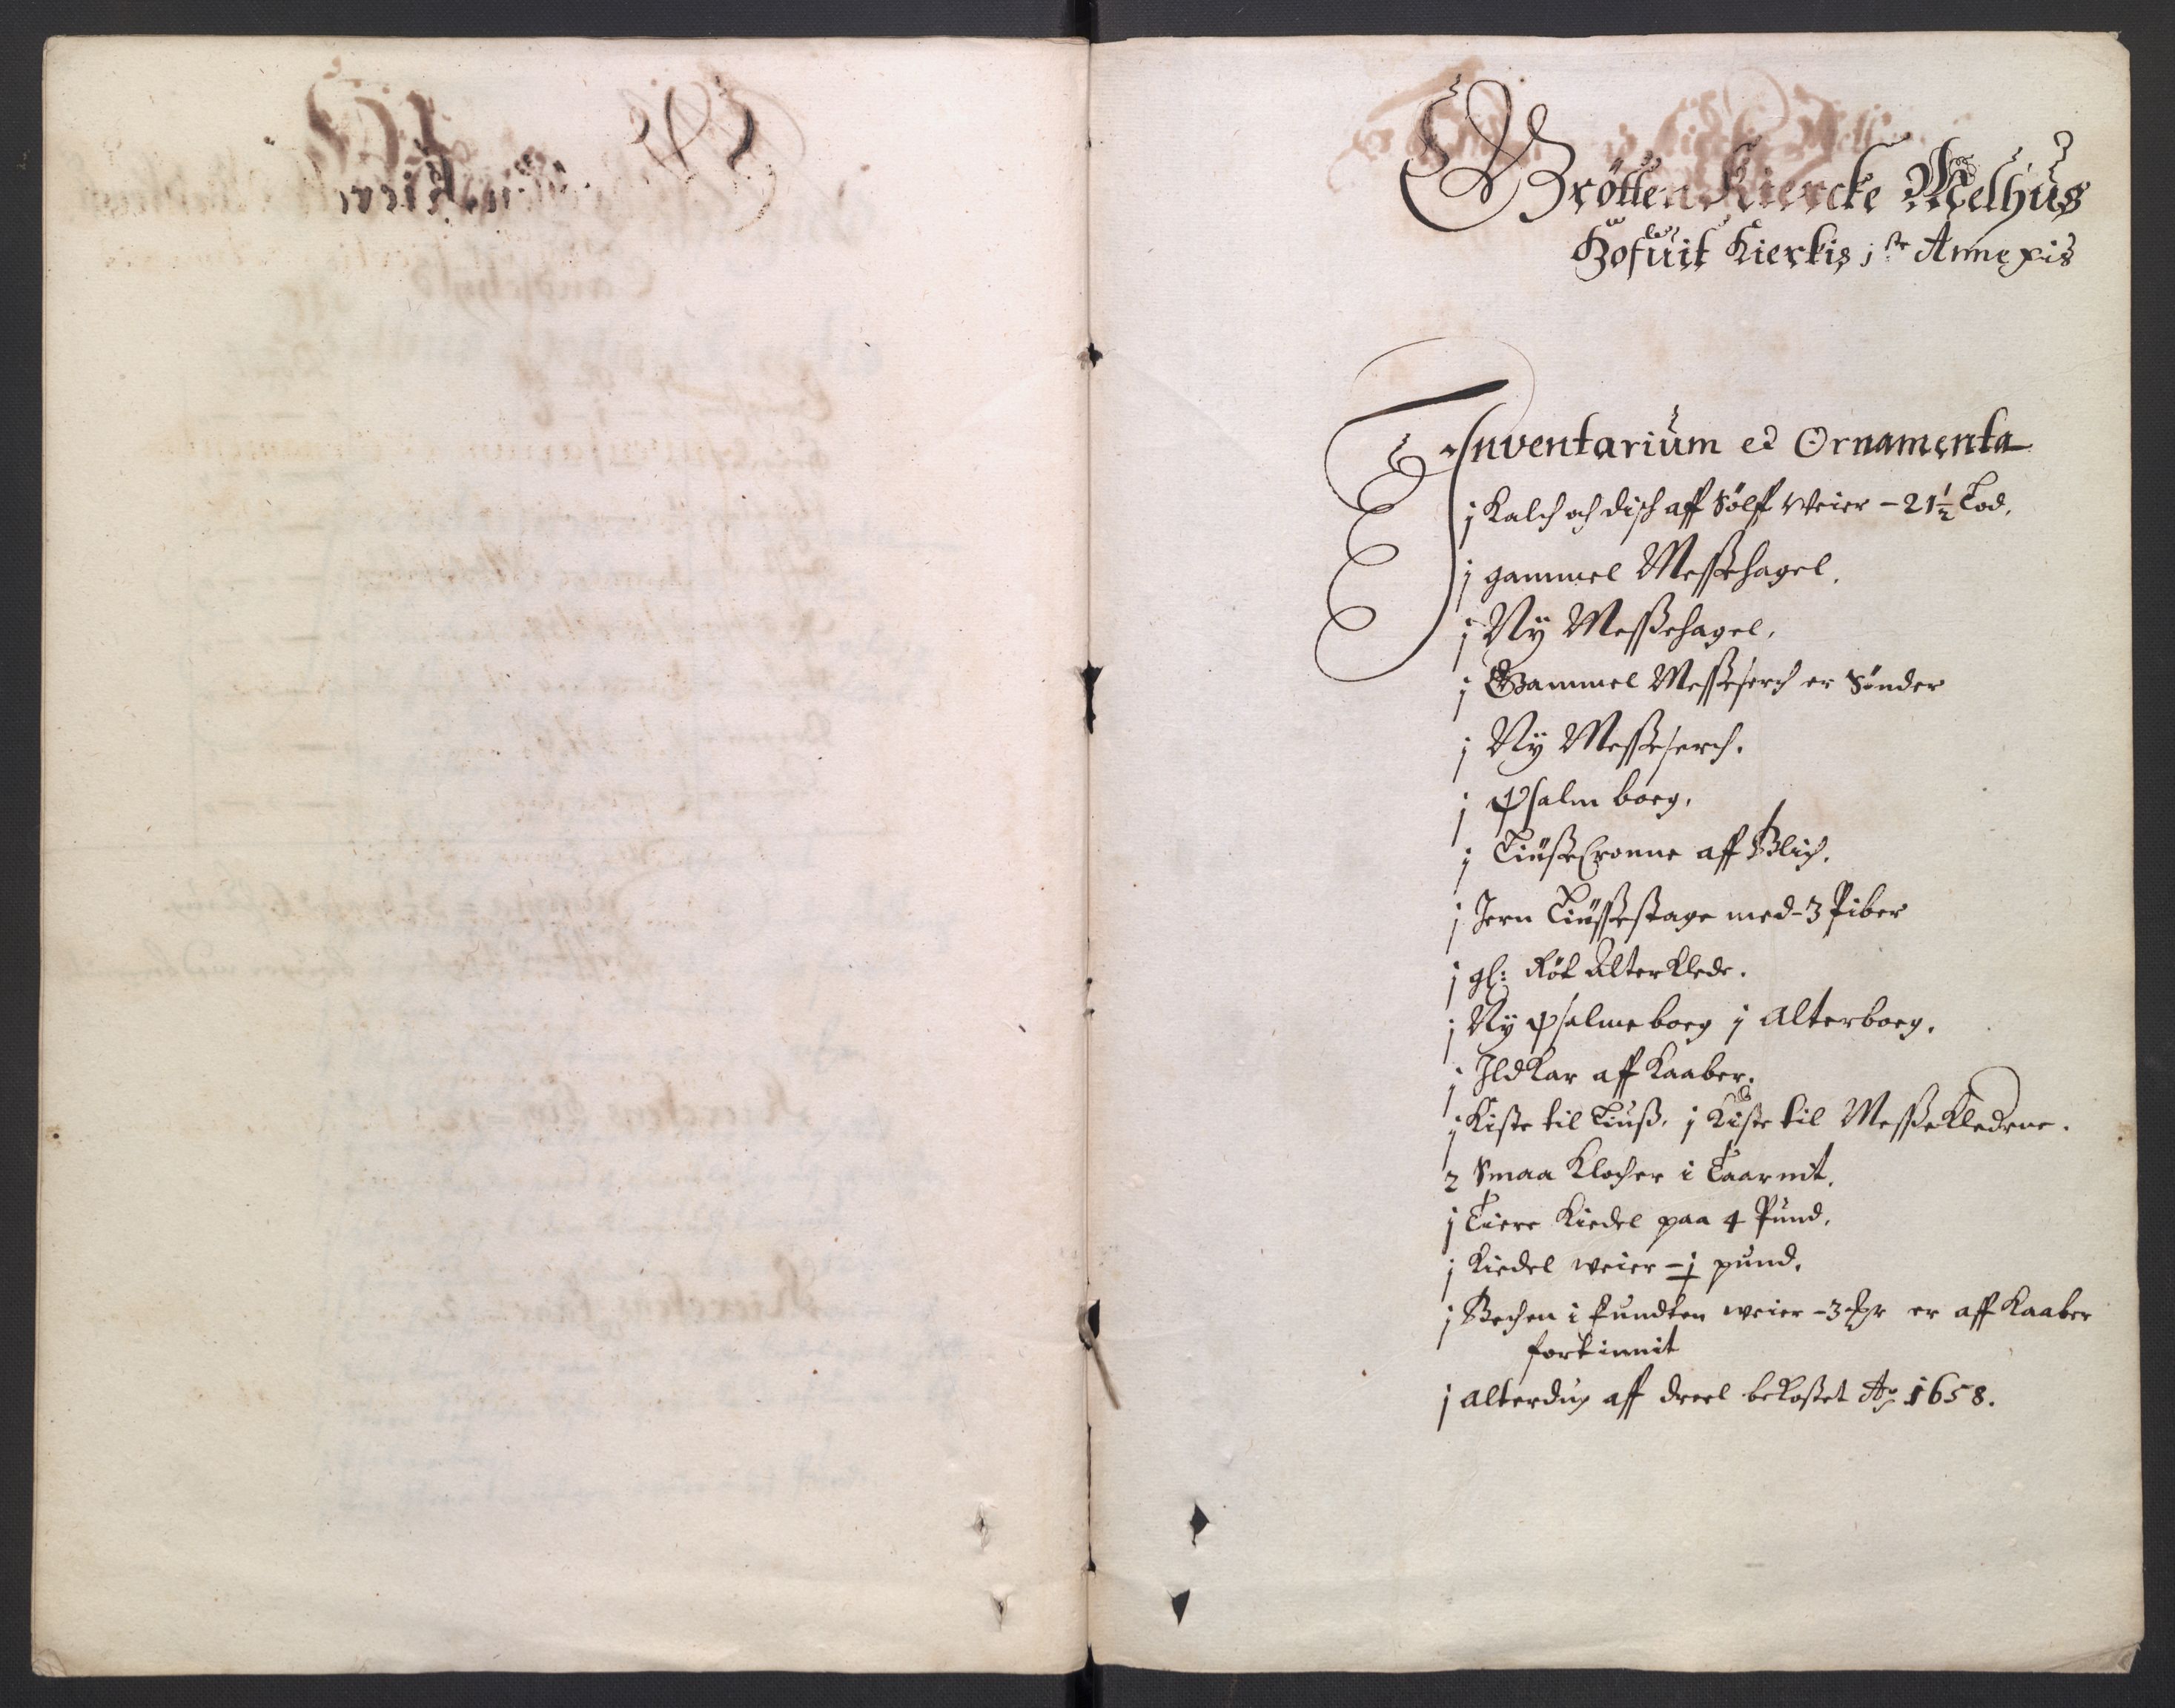 Grøtten Kiercke Melhus
Hofuit Kierkis j.ste Annexis
Inventarium et Ornamenta
j Kalch och disch aff Sølff weier - 21½ Lod.
j gammel Messehagel.
j Ny Messehagel.
j Gammel Messeserch er Sønder
j Ny Messeserch.
j Psalm boeg.
j Liuße Cronne aff Blich.
j Jern Liussestage med - 3 Piber
j gl: Røt Alterklede.
j Ny Psalmeboeg j Alterboeg.
j Ildkar aff Kaaber.
j Kiste til Liuß. j Kiste til Messeklederne.
2 Smaa Klocher i Taarnit.
j Tiere Kiedel paa 4 Pund.
j Kiedel weier - j pund.
j Bechen i Fundten weier - 3 er aff Kaaber
fortinnit
j Alterdug aff dreel bekostet Ao 1658.